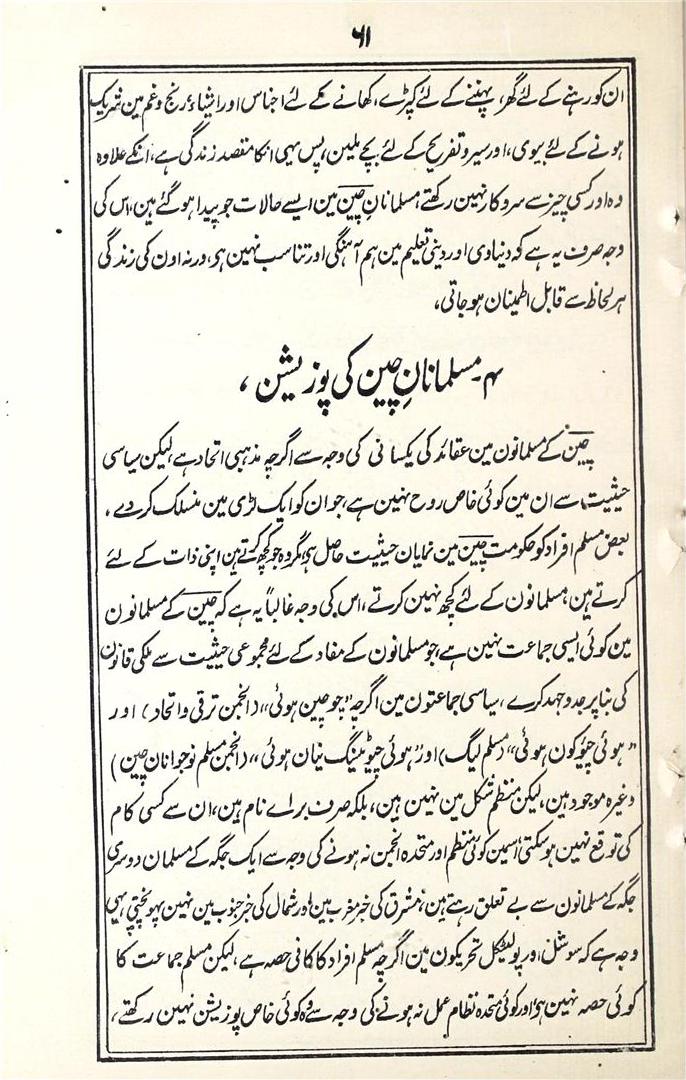 ۶۱
ان کو رہنے کے لئے گھر، پہننے کے لئے کپڑے، کھانے کے لئے اجناس اور اشیاء، رنج و غم مین شریک
ہونے کے لئے بیوی، اور سیر و تفریح کے لئے بچے ملین، پس یہی انکا مقصد زندگی ہے، انکے علاوہ
وہ اور کسی چیز سے سروکار نہین رکھتے، مسلمانانِ چین مین ایسے حالات جو پیدا ہو گئے ہین، اس کی
وجہ صرف یہ ہے کہ دنیاوی اور دینی تعلیم مین ہم آہنگی اور تناسب نہین ہی، ورنہ اون کی زندگی
ہر لحاظ سے قابل اطمینان ہو جاتی،
۴۔ مسلمانانِ چین کی پوزیشن،
چین کے مسلمانون مین عقائد کی یکسانی کی وجہ سے اگرچہ مذہبی اتحاد ہے، لیکن سیاسی
حیثیت سے ان مین کوئی خاص روح نہین ہے، جو ان کو ایک لڑی مین منسلک کر دے،
بعض مسلم افراد کو حکومت چین مین نمایان حیثیت حاصل ہی، مگر وہ جو کچھ کرتے ہین اپنی ذات کے لئے
کرتے ہین، مسلمانون کے لئے کچھ نہین کرتے، اس کی وجہ غالباً یہ ہے کہ چین کے مسلمانون
مین کوئی ایسی جماعت نہین ہے، جو مسلمانون کے مفاد کے لئے مجموعی حیثیت سے ملکی قانون
کی بنا پر جد و جہد کرے، سیاسی جماعتون مین اگرچہ "چو چین ہوئی" (انجمن ترقی و اتحاد) اور
"ہوئی چیو کون ہوئی" (مسلم لیگ) اور "ہوئی چیو مینگ نیان ہوئی" (انجمن مسلم نوجوانان چین)
وغیرہ موجود ہین، لیکن منظم شکل مین نہین ہین، بلکہ صرف براے نام ہین، ان سے کسی کام
کی توقع نہین ہو سکتی، اسمین کوئی منظم اور متحدہ انجمن نہ ہونے کی وجہ سے ایک جگہ کے مسلمان دوسری
جگہ کے مسلمانون سے بے تعلق رہتے ہین، مشرق کی خبر مغرب مین اور شمال کی خبر جنوب مین نہین پہونچتی، یہی
وجہ ہے کہ سوشل اور پولیٹکل تحریکون مین اگرچہ مسلم افراد کا کافی حصہ ہے، لیکن مسلم جماعت کا
کوئی حصہ نہین ہی، اور کوئی متحدہ نظام عمل نہ ہونے کی وجہ سے وہ کوئی خاص پوزیشن نہین رکھتے،